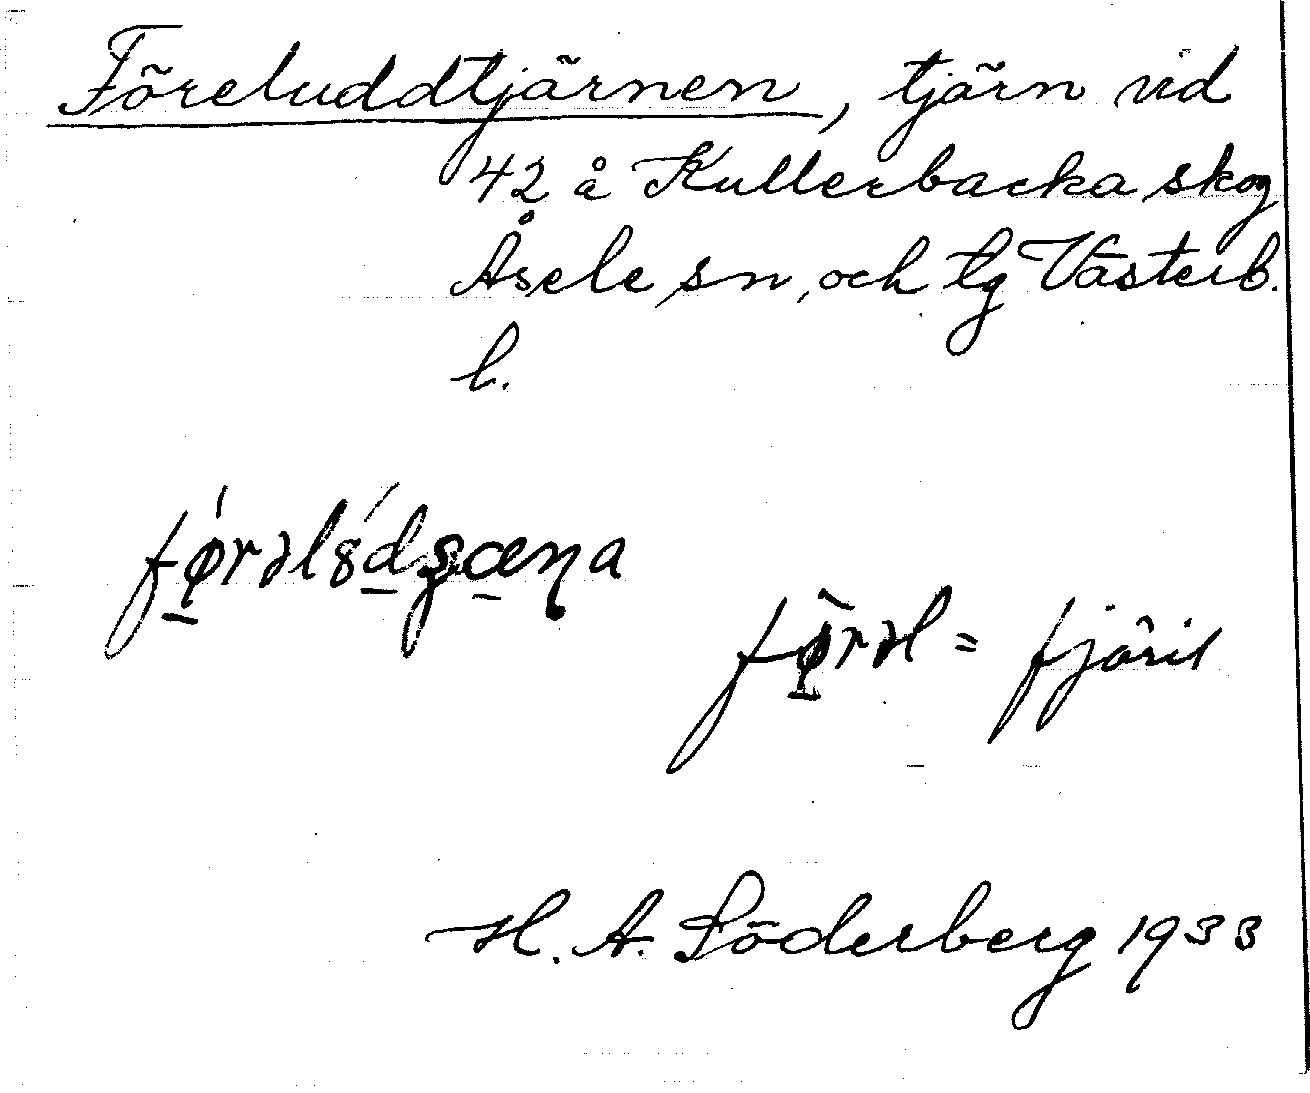 Föreluddtjärnen, tjärn vid
42 å Kullerbacka skog
Åsele sn, och tg Västerb.
l.
fǿ̱rəls̱
fø̱̀rəl = fjäril
H. A. Söderberg 1933